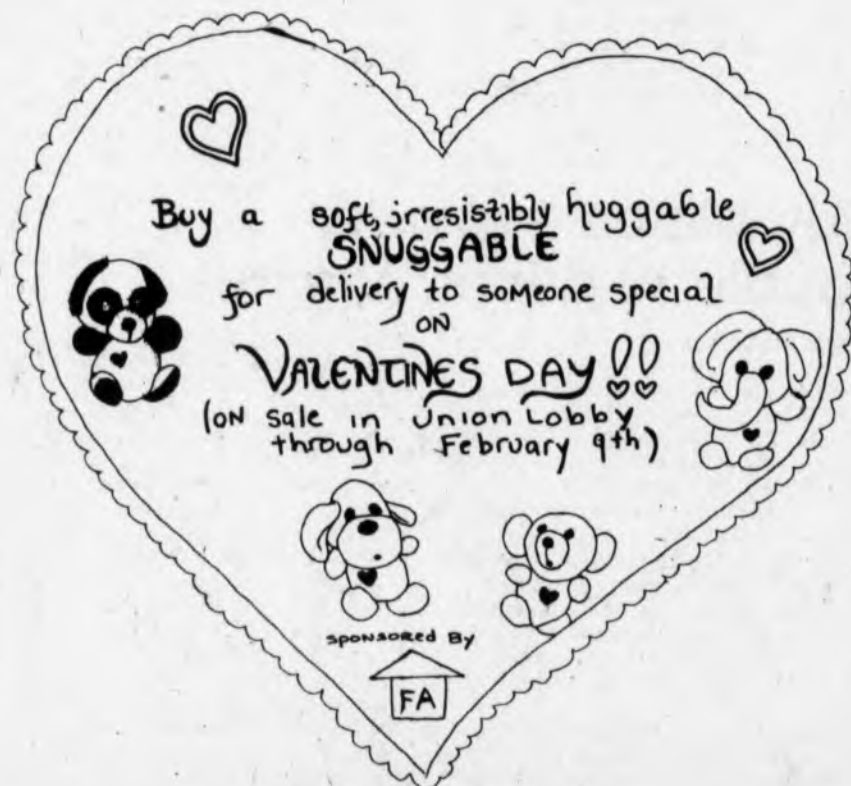 Buy a soft, irresistibly huggable
SNUGGABLE
for delivery to someone special
ON
VALENTINES DAY !!
(ON sale in Union Lobby
through February 9th)
sponsored By
FA